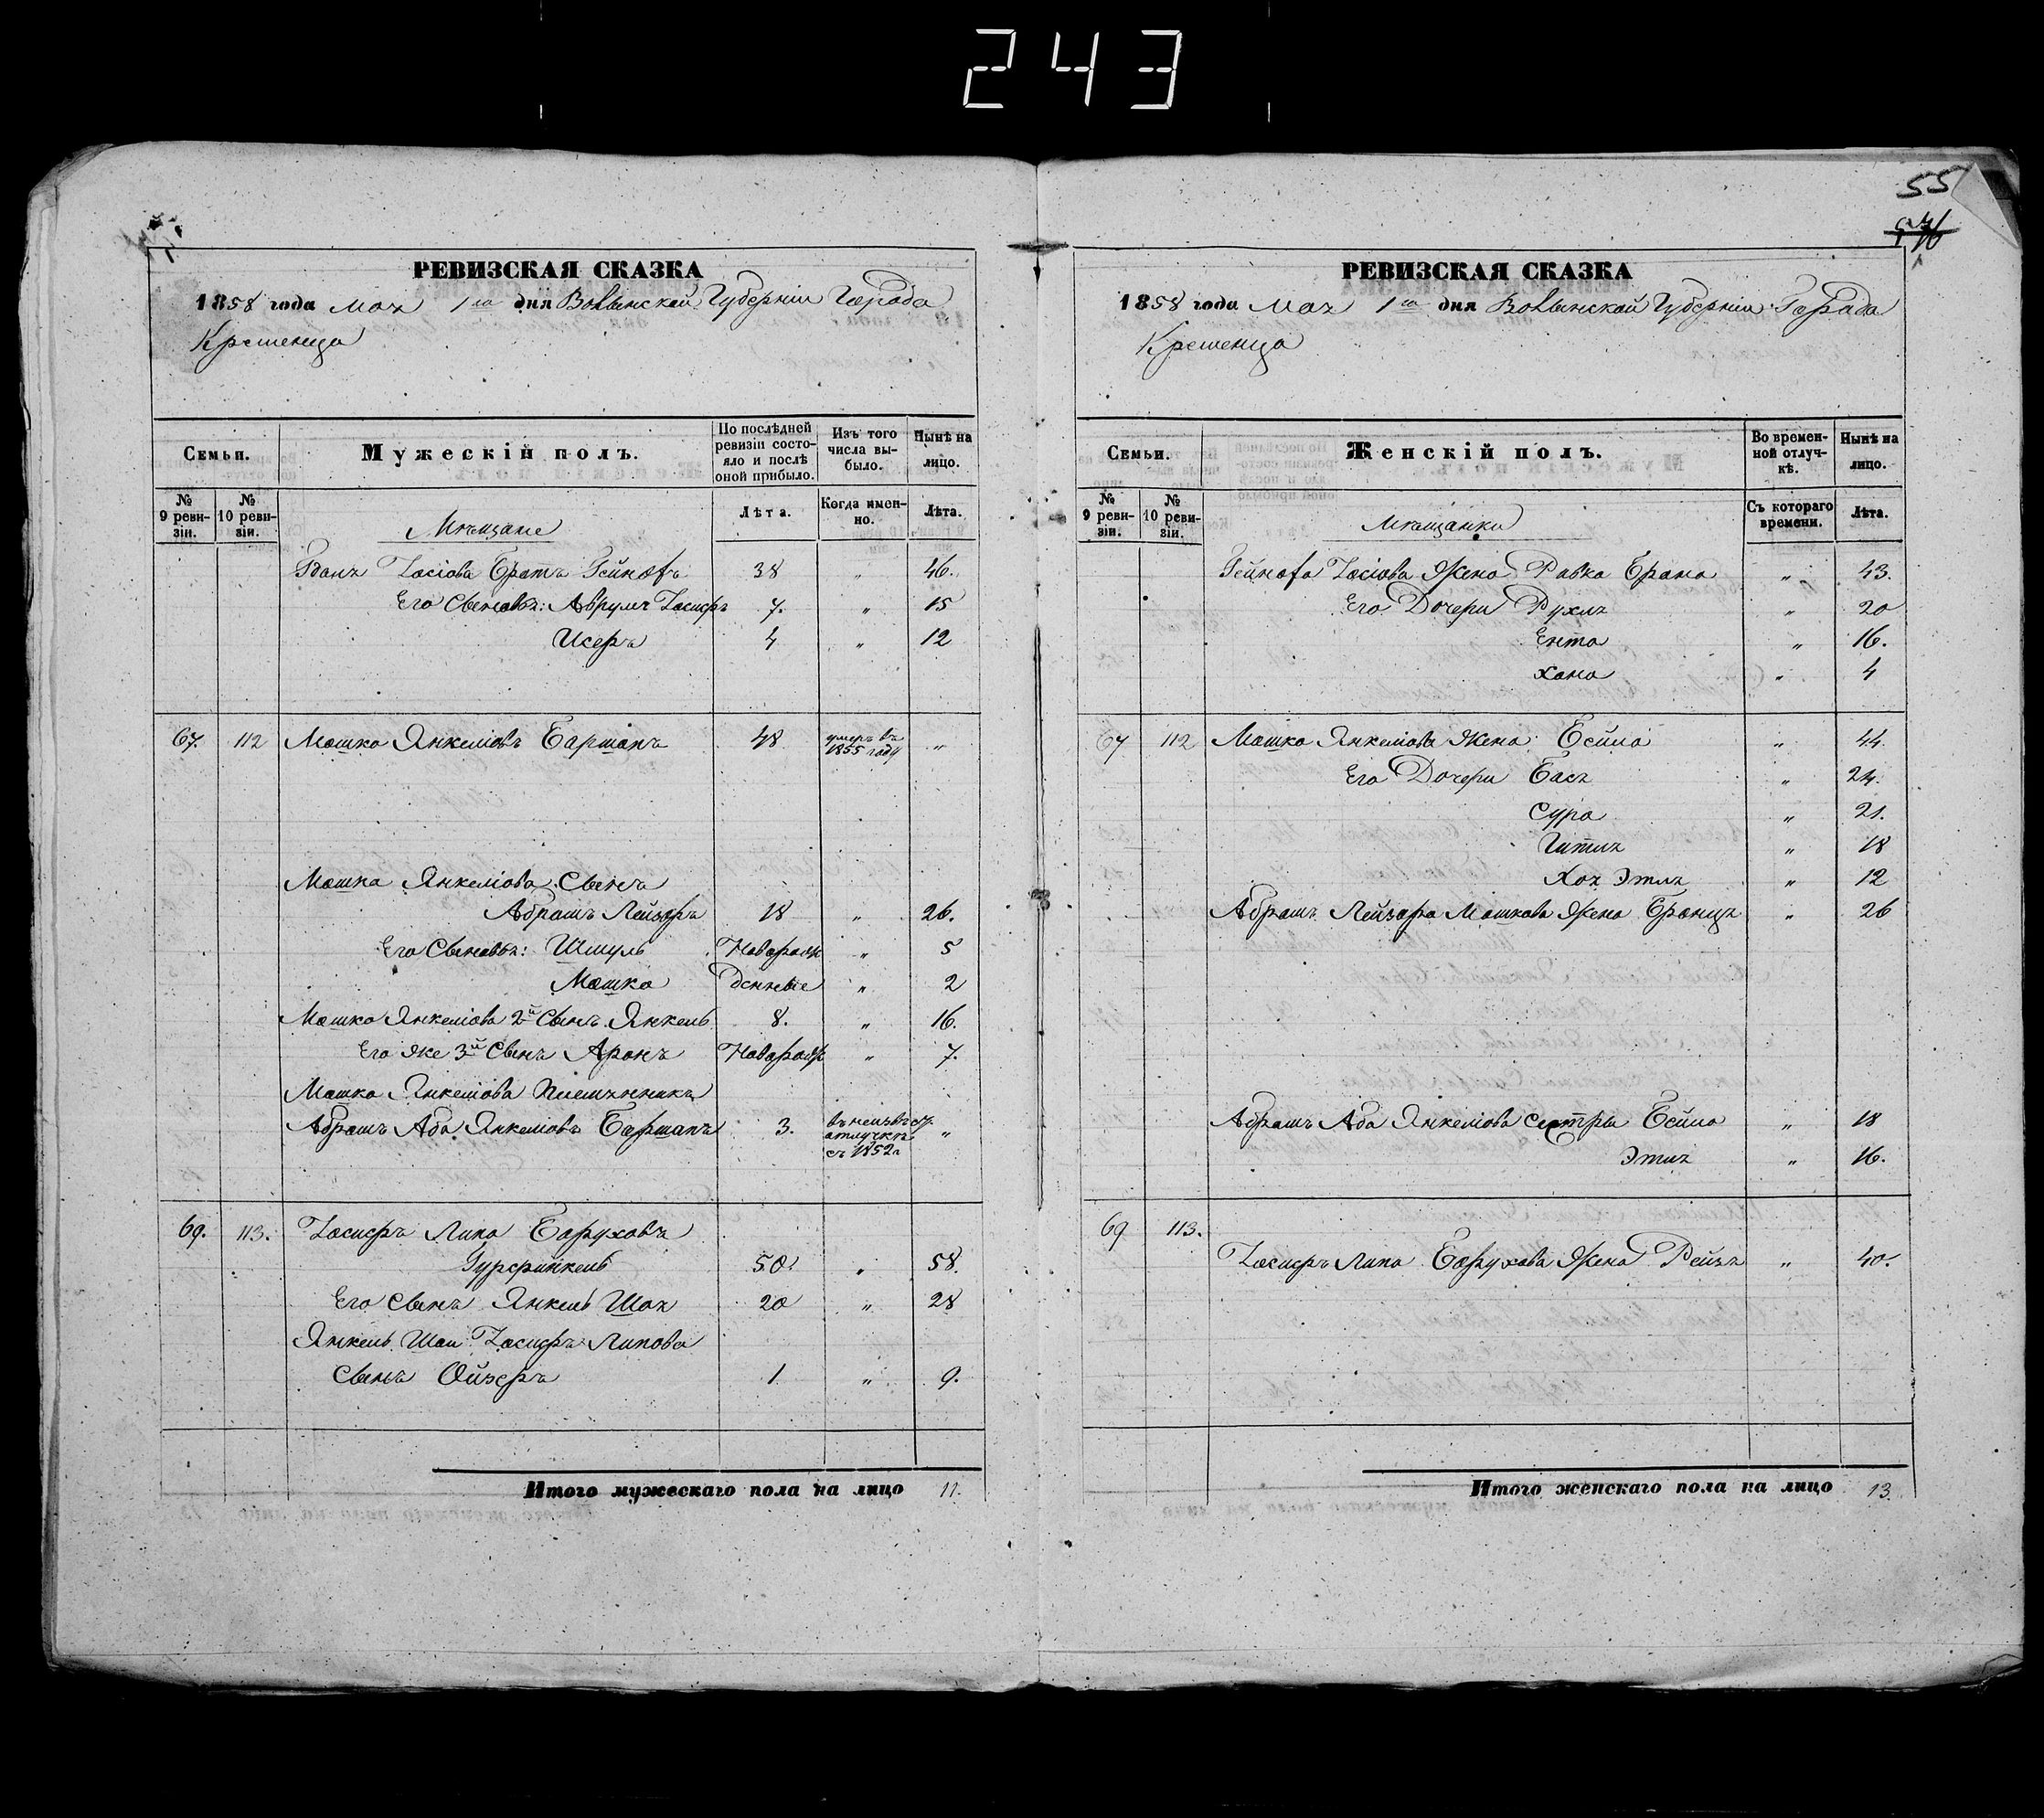 243
55
РЕВИЗСКАЯ СКАЗКА
1858 года мая 1го дня Волынской Губерніи Города
Кременца
Семьи.
Мужескій полъ.
По послѣдней ревизіи состояло и послѣ оной прибыло.
Изъ того числа выбыло.
Нынѣ на лицо.
№ 9 ревизіи.
№ 10 ревизіи.
Мѣщане
Лѣта.
Когда именно.
Лѣта.
Іосіова Братъ Гейнохъ 38 " 46.
Его Сыновья: Аврумъ Іосифъ 7. " 15
Исеръ 4 " 12
67. 112 Мошко Янкеліовъ Баршапъ 48 умеръ въ 1855 году "
Мошка Янкеліова Сынъ
Абрамъ Лейзоръ 18 " 26.
Его Сыновья: Шмуль Новорож " 5
Мошко денные " 2
Мошко Янкеліова 2й Сынъ Янкель 8. " 16.
Его же 3й Сынъ Аронъ Новорож " 7.
Мошко Янкеліова Племянникъ
Абрамъ Аба Янкеліовъ Баршапъ 3. въ неизвѣст. отлучкѣ съ 1852г "
69. 113. Іосифъ Липа Баруховъ
Гурфинкель 50. " 58.
Его Сынъ Янкель Шая 20 " 28
Янкель Шаи Іосифъ Липова
Сынъ Ойзеръ 1 " 9.
Итого мужескаго пола на лицо 11.
РЕВИЗСКАЯ СКАЗКА
1858 года мая 1го дня Волынской Губерніи Города
Кременца
Семьи.
Женскій полъ.
Во временной отлучкѣ.
Нынѣ на лицо.
№ 9 ревизіи.
№ 10 ревизіи.
Мѣщанки
Съ котораго времени.
Лѣта.
Гейноха Іосіова Жена Ривка Брана " 43.
Его Дочери Рухля " 20
Ента " 16.
Хана " 4
67 112 Мошко Янкеліова Жена Бейла " 44.
Его Дочери Бася " 24.
Сура " 21.
Гитля " 18
Хая Этля " 12
Абрамъ Лейзора Мошкова Жена Бранця " 26
Абрамъ Аба Янкеліова Сестры Бейла " 18
Этля " 16.
69 113.
Іосифъ Липа Барухова Жена Рейзя " 40.
Итого женскаго пола на лицо 13.